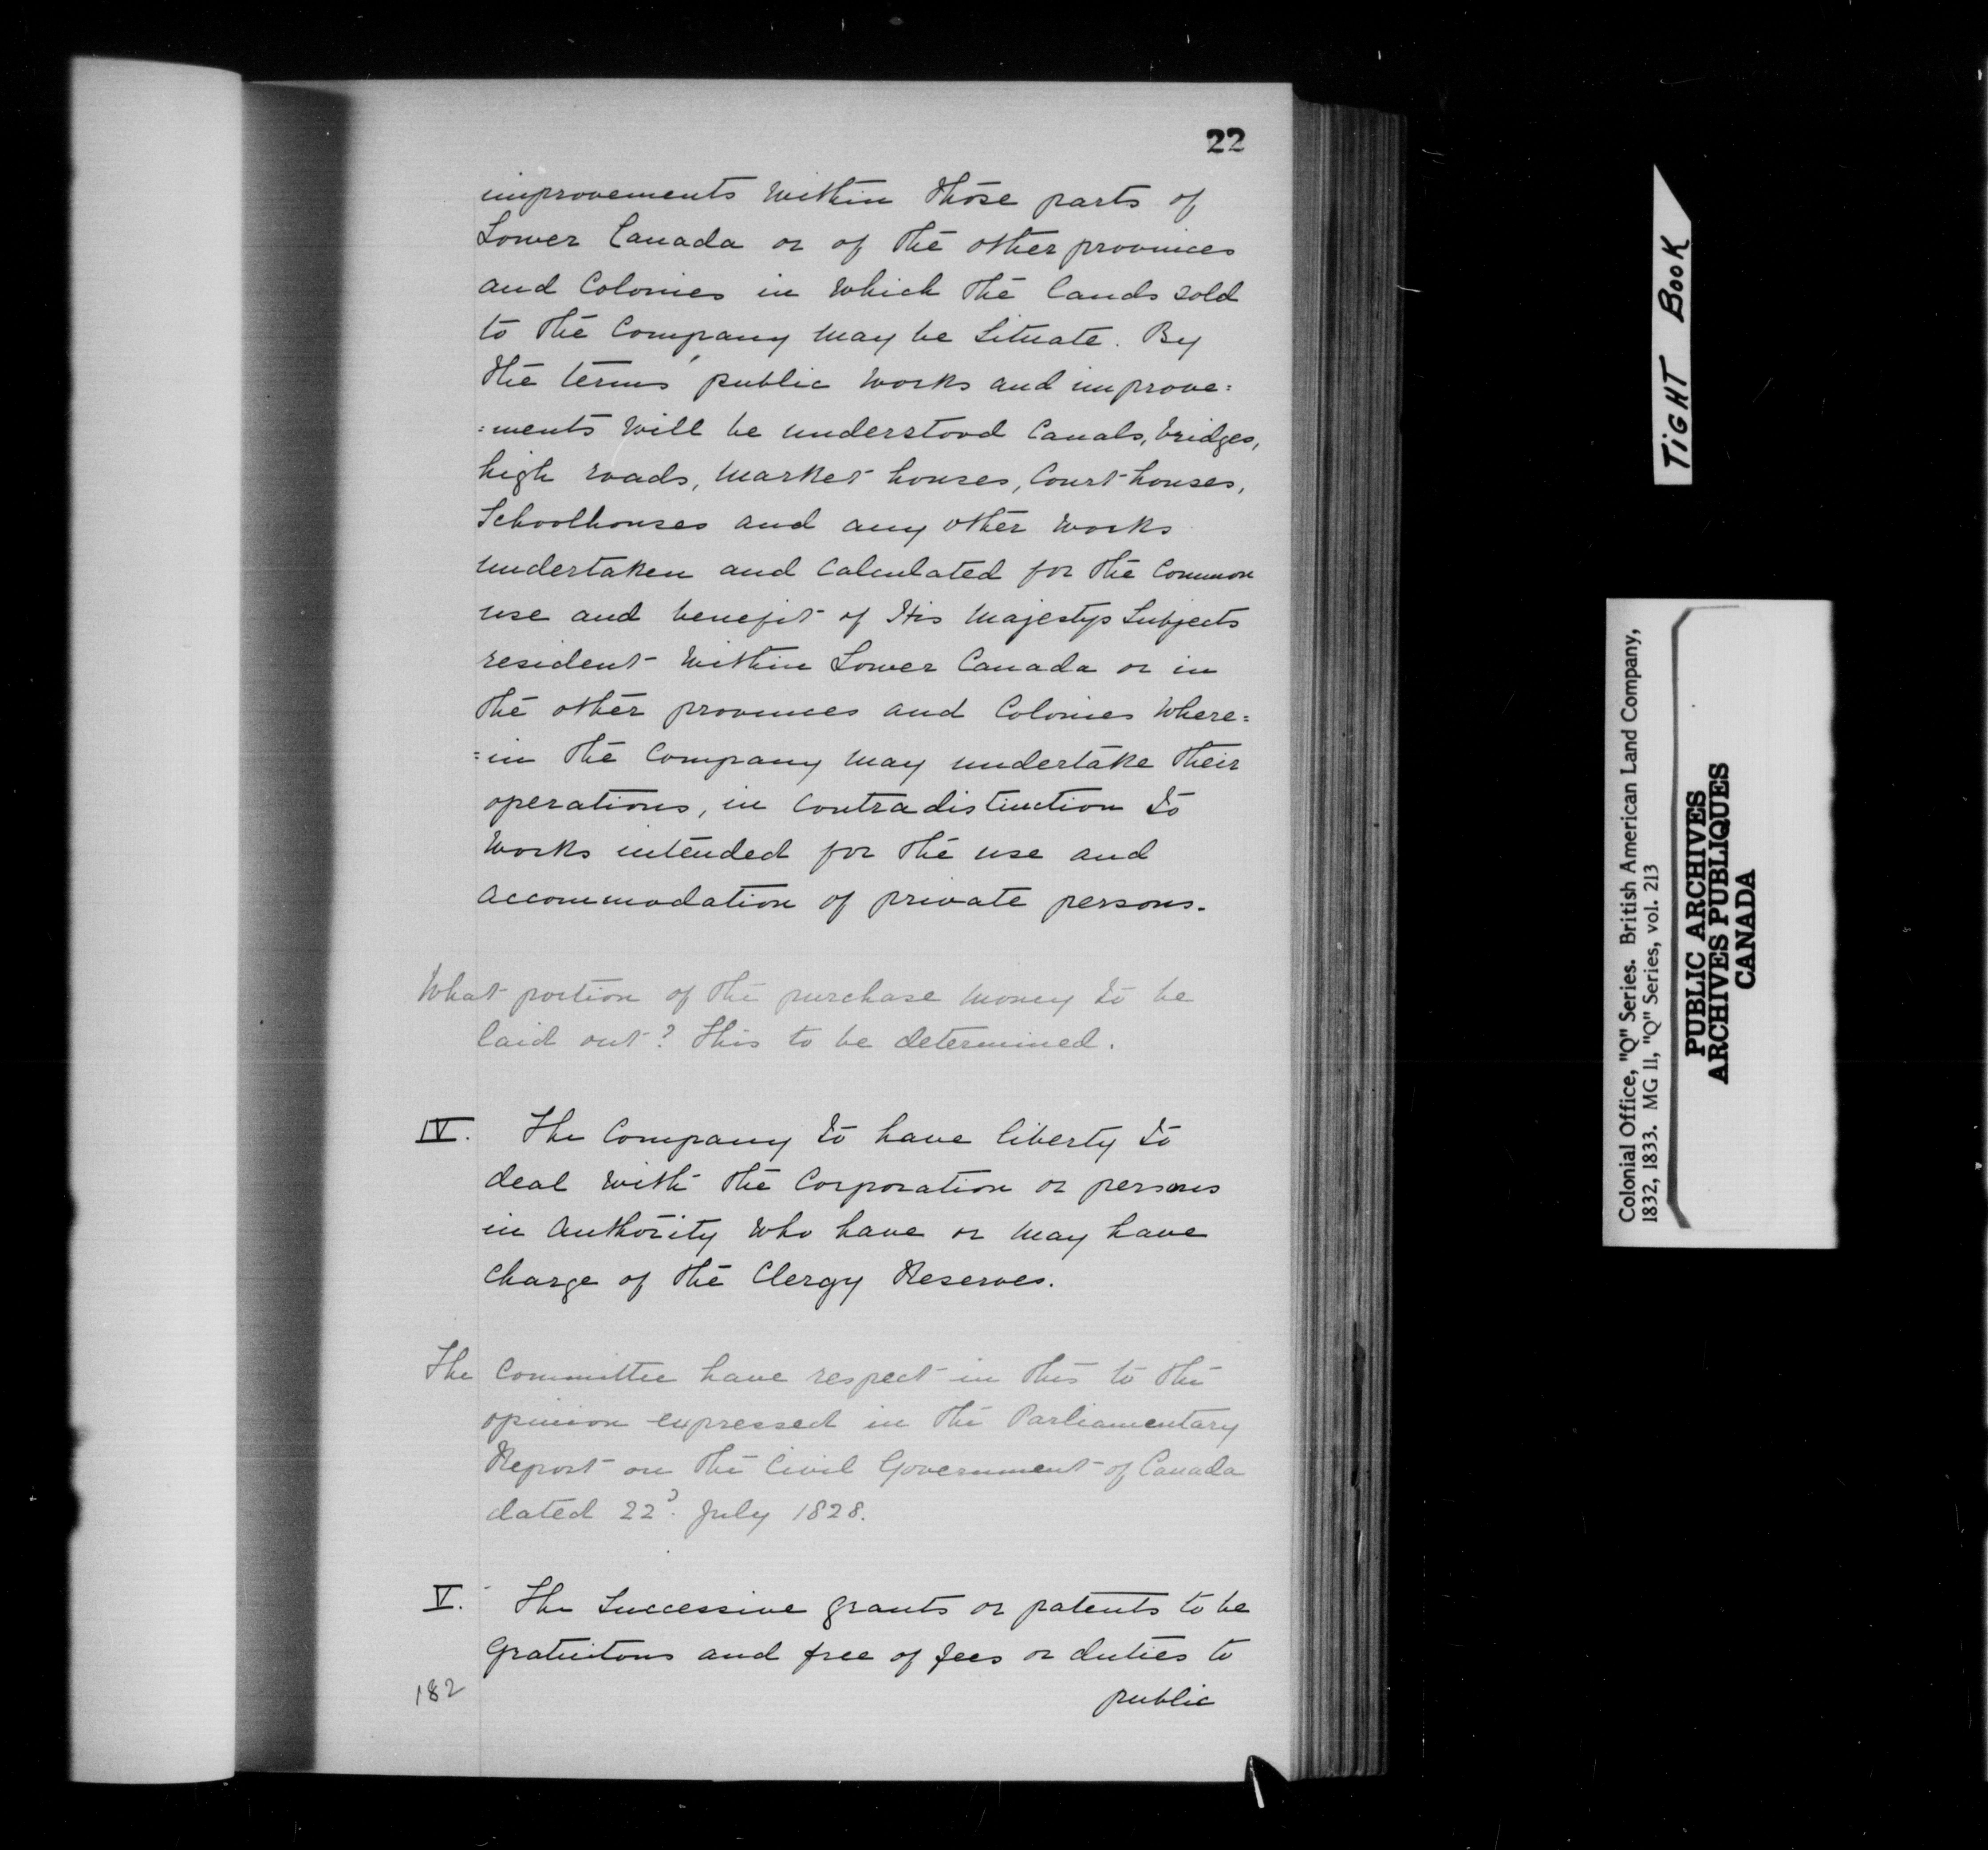 22
improvements within those parts of
Lower Canada or of the other provinces
and Colonies in which the lands sold
to the Company may be situate. By
the terms public works and improve=
=ments will be understood Canals, bridges,
high roads, market houses, Court houses,
Schoolhouses and any other works
undertaken and calculated for the Common
use and benefit of His Majestys Subjects
resident within Lower Canada or in
the other provinces and Colonies where=
=in the Company may undertake their
operations, in contradistinction to
works intended for the use and
accommodation of private persons.
What portion of the purchase money to be
laid out? This to be determined.
IV. The Company to have liberty to
deal with the Corporation or persons
in authority who have or may have
charge of the Clergy Reserves.
The Committee have respect in this to the
opinion expressed in the Parliamentary
Report on the Civil Government of Canada
dated 22d. July 1828.
V. The Successive grants or patents to be
gratuitous and free of fees or duties to
public
182
TIGHT BOOK
Colonial Office, "Q" Series. British American Land Company,
1832, 1833. MG 11, "Q" Series, vol. 213
PUBLIC ARCHIVES
ARCHIVES PUBLIQUES
CANADA